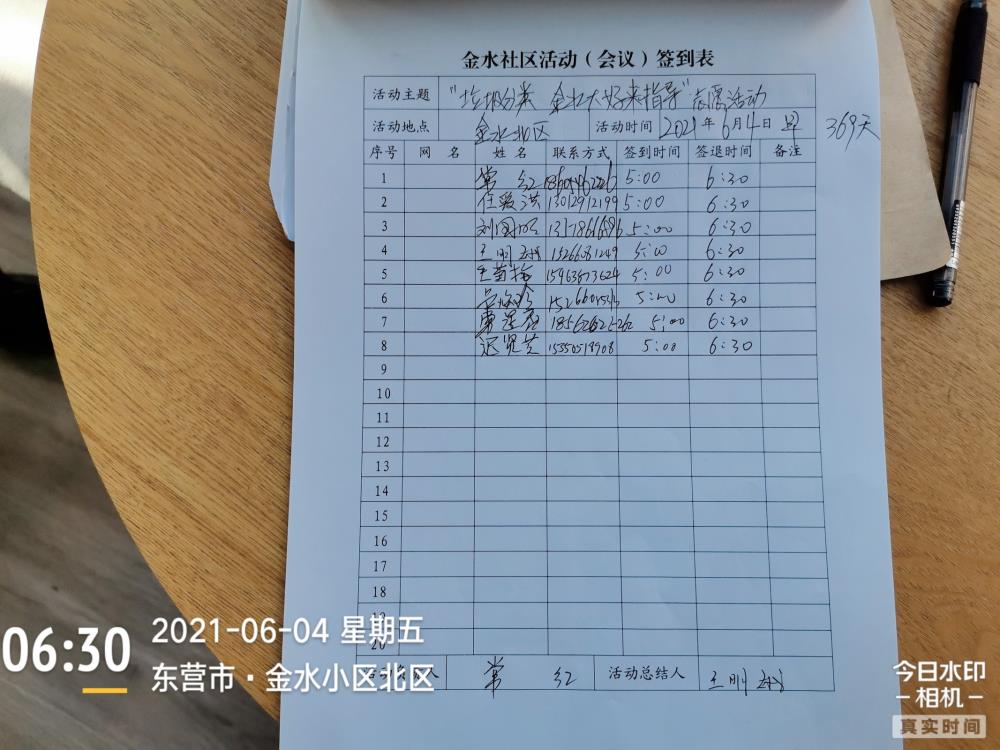 金水社区活动（会议）签到表
活动主题 "垃圾分类 金水大好来指导"志愿活动
活动地点 金水北区 活动时间 2021年6月4日 早 369天
序号 网 名 姓 名 联系方式 签到时间 签退时间 备注
1 常 红 5:00 6:30
2 任爱洪 13012912199 5:00 6:30
3 5:00 6:30
4 王明 15266031249 5:00 6:30
5 15963873624 5:00 6:30
6 5:00 6:30
7 5:00 6:30
8 15350518908 5:00 6:30
9
10
11
12
13
14
15
16
17
18
19
20
人 常 红 活动总结人 王明
06:30
2021-06-04 星期五
东营市·金水小区北区
今日水印
相机
真实时间